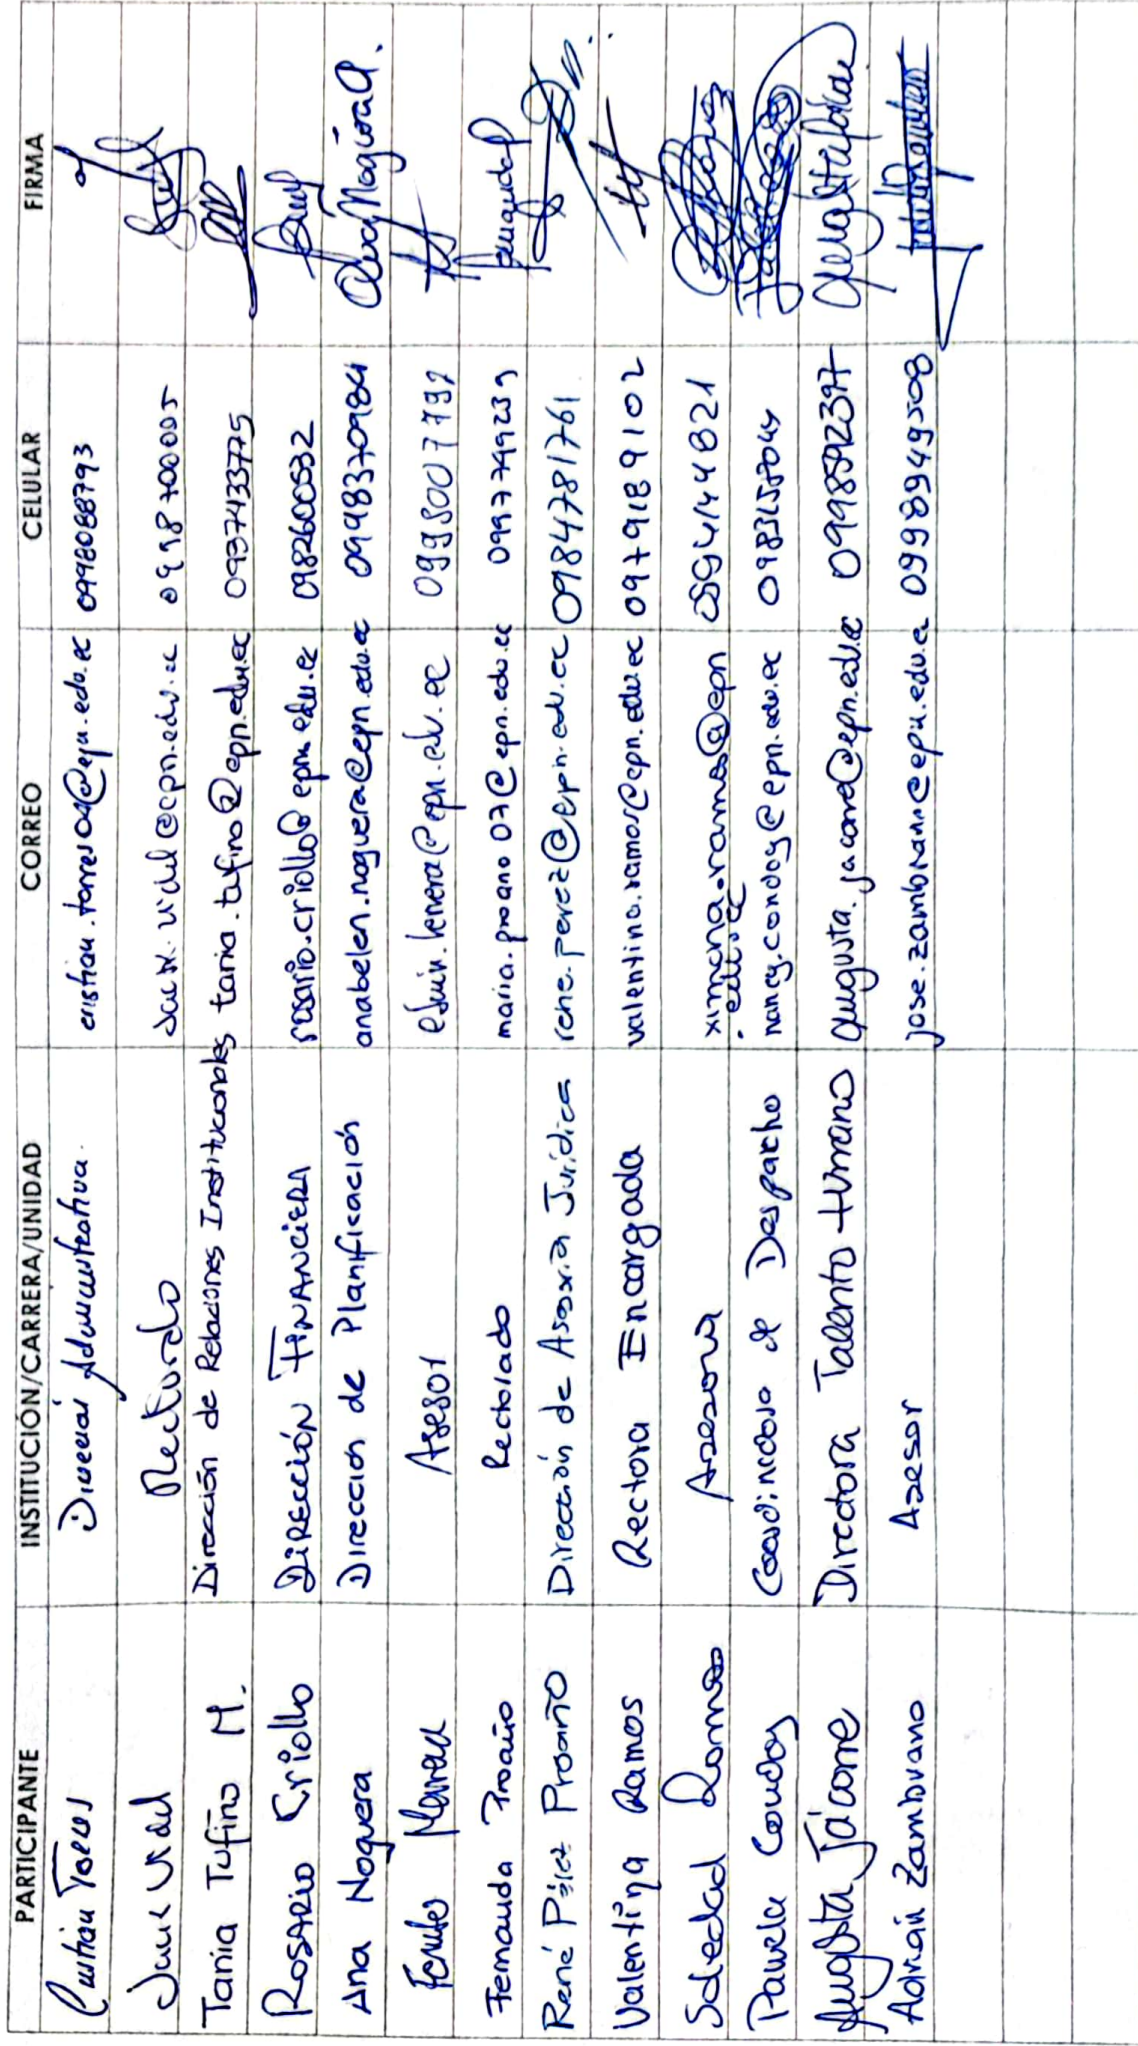 PARTICIPANTE INSTITUCIÓN/CARRERA/UNIDAD CORREO CELULAR FIRMA
Cristian Torres Dirección Administrativa. cristian.torres04@epn.edu.ec 0998088793
Vidal Rectorado @epn.edu.ec 0998700005
Tania Tufiño M. Dirección de Relaciones Institucionales tania.tufino@epn.edu.ec 0937433775
Rosario Criollo Dirección Financiera rosario.criollo@epn.edu.ec 0982600532
Ana Noguera Dirección de Planificación anabelen.noguera@epn.edu.ec 0998370984
Asesor 0995007792
Fernanda Proaño Rectorado maria.proano07@epn.edu.ec 0997749239
René Pérez Proaño Dirección de Asesoría Jurídica rene.perez@epn.edu.ec 0984781761
Valentina Ramos Rectora Encargada valentina.ramos@epn.edu.ec 0979189102
Soledad Ramos Asesora ximena.ramos@epn
.edu.ec
Pamela Condoy Coordinadora de Despacho nancy.condoy@epn.edu.ec
Augusta Jácome Directora Talento Humano augusta.jacome@epn.edu.ec 0998592377
Adrián Zambrano Asesor jose.zambrano@epn.edu.ec 0998949508